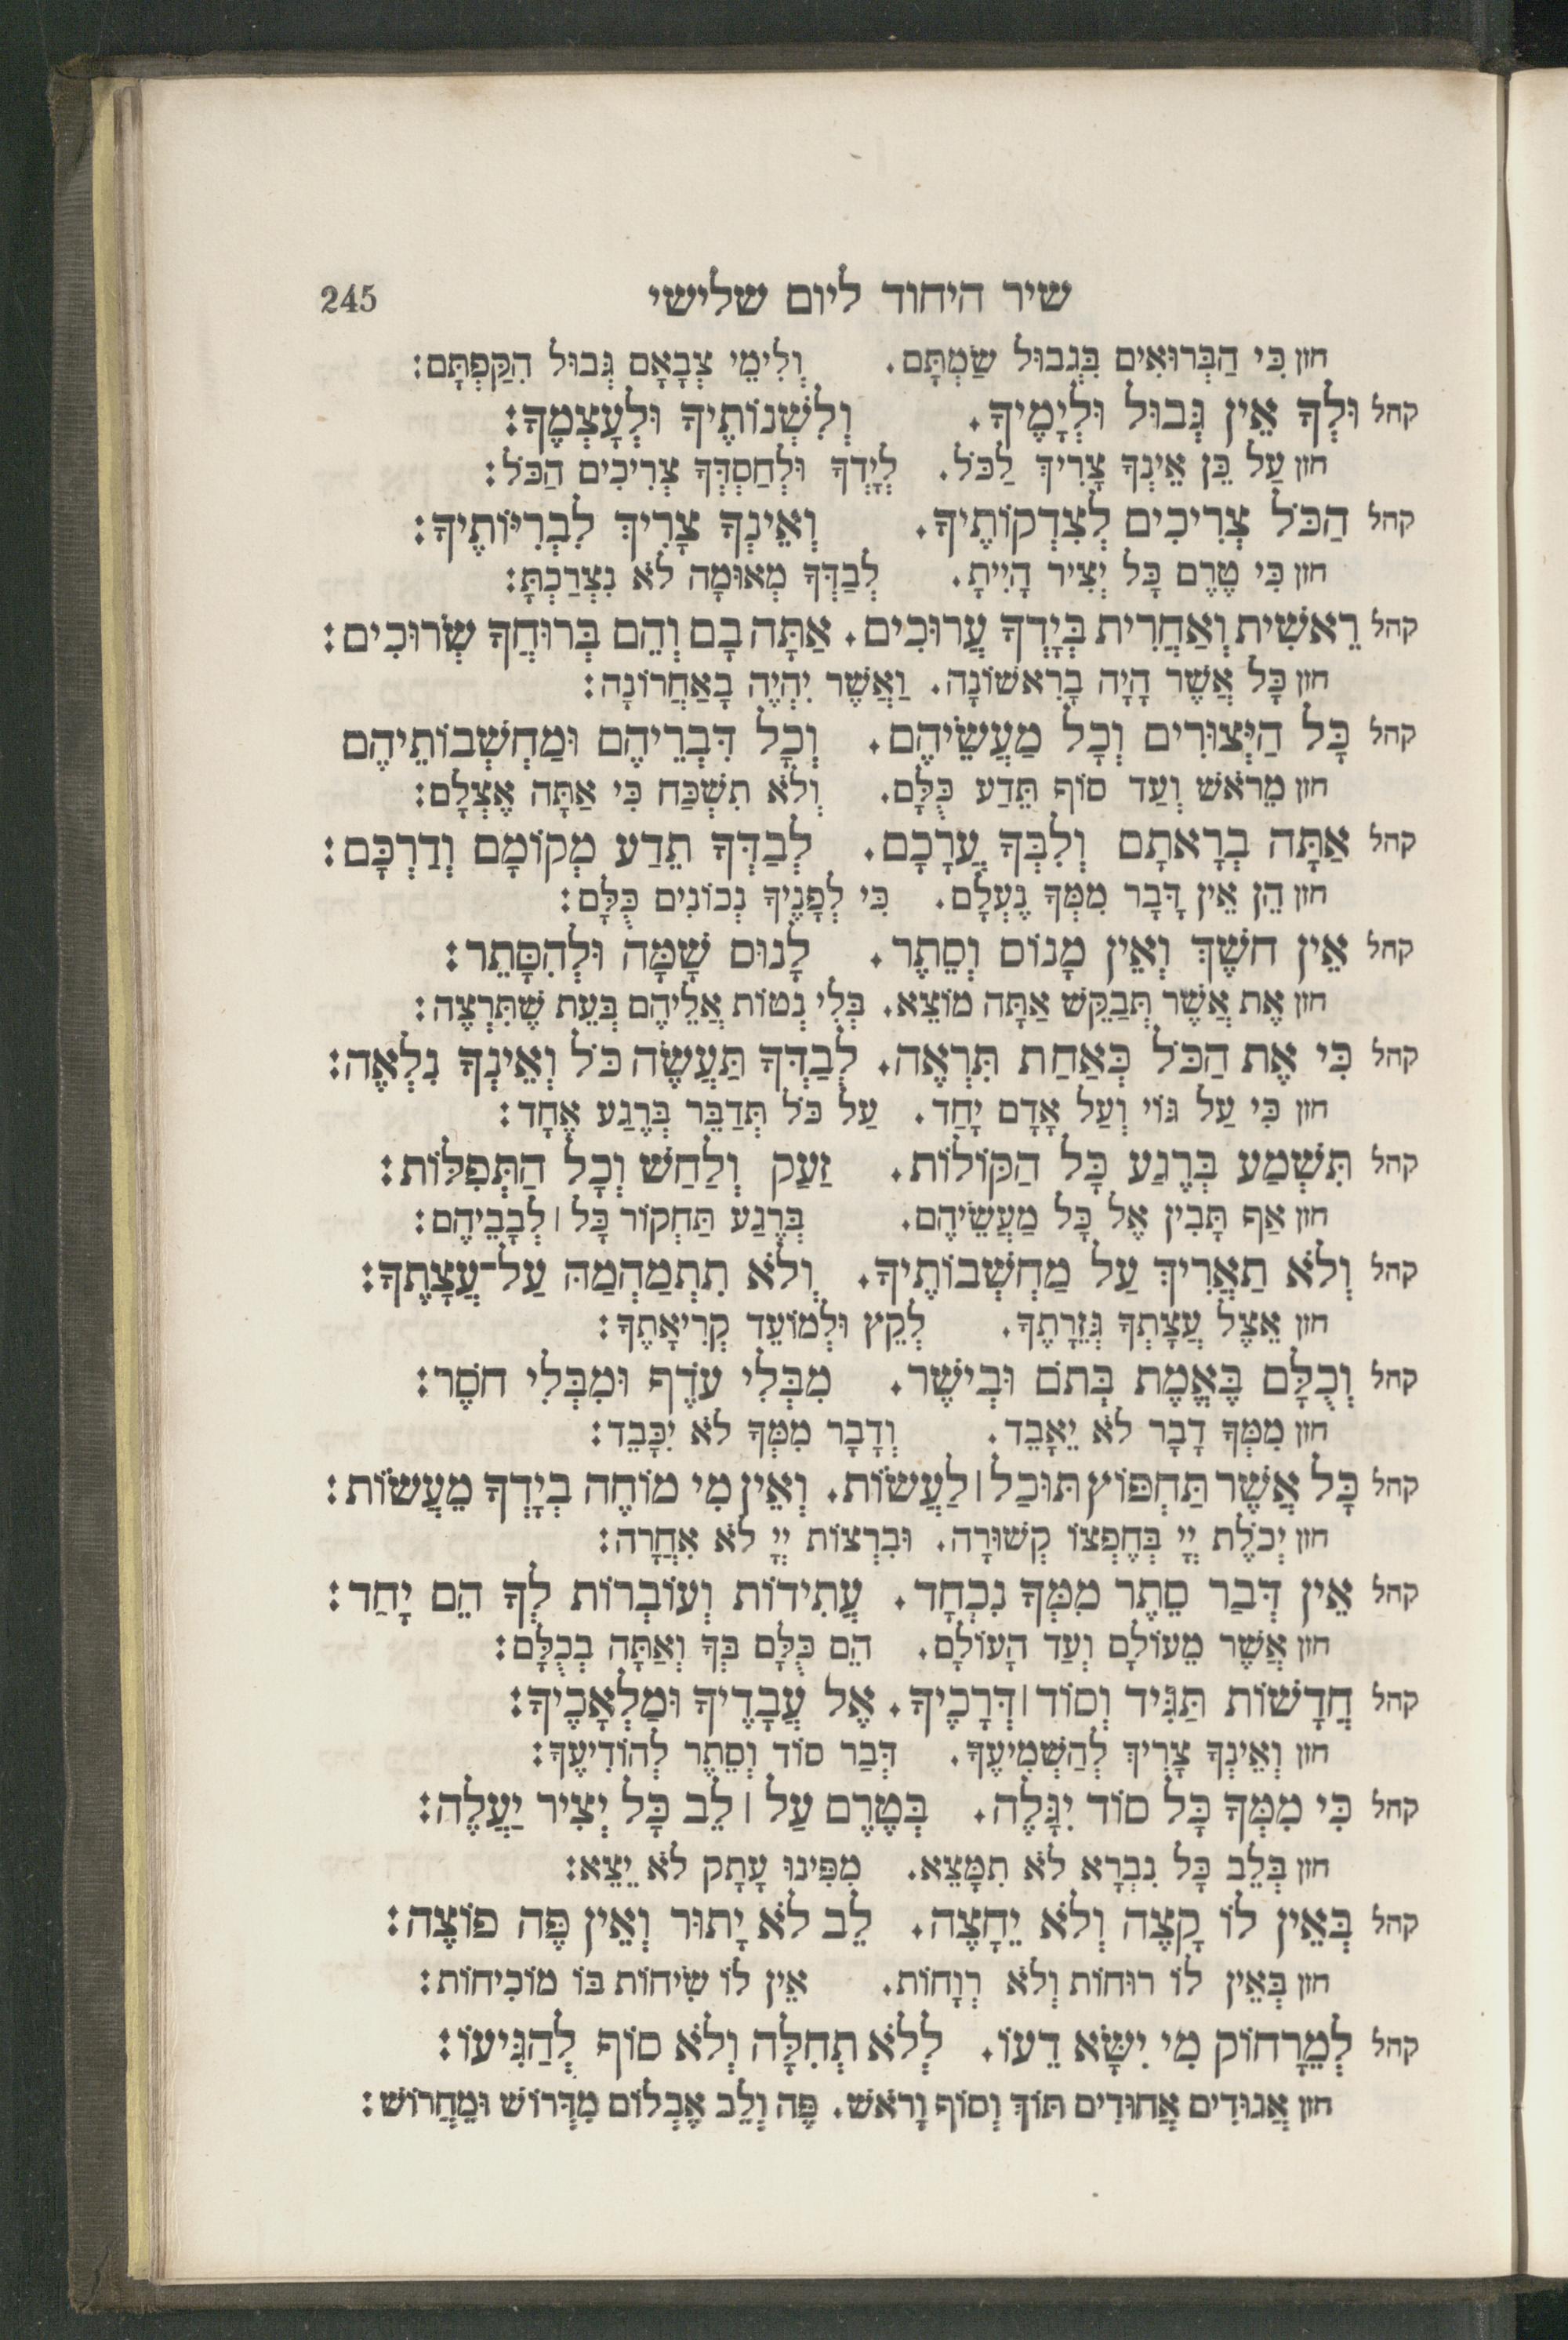 שיר היחוד ליום שלישי 245
חזן כִּי הַבְּרוּאִים בִּגְבוּל שַׂמְתָּם. וְלִימֵי צְבָאָם גְּבוּל הִקַּפְתָּם:
קהל וּלְךָ אֵין גְּבוּל וּלְיָמֶיךָ. וְלִשְׁנוֹתֶיךָ וּלְעָצְמֶךָ:
חזן עַל כֵּן אֵינְךָ צָרִיךְ לַכֹּל. לְיָדְךָ וּלְחַסְדְּךָ צְרִיכִים הַכֹּל:
קהל הַכֹּל צְרִיכִים לְצִדְקוֹתֶיךָ. וְאֵינְךָ צָרִיךְ לִבְרִיּוֹתֶיךָ:
חזן כִּי טֶרֶם כָּל יְצִיר הָיִיתָ. לְבַדְּךָ מְאוּמָה לֹא נִצְרַכְתָּ:
קהל רֵאשִׁית וְאַחֲרִית בְּיָדְךָ עֲרוּכִים. אַתָּה בָם וְהֵם בְּרוּחֲךָ שְׂרוּכִים:
חזן כָּל אֲשֶׁר הָיָה בָרִאשׁוֹנָה. וַאֲשֶׁר יִהְיֶה בָאַחֲרוֹנָה:
קהל כָּל הַיְּצוּרִים וְכָל מַעֲשֵׂיהֶם. וְכָל דִּבְרֵיהֶם וּמַחְשְׁבוֹתֵיהֶם
חזן מֵרֹאשׁ וְעַד סוֹף תֵּדַע כֻּלָּם. וְלֹא תִשְׁכַּח כִּי אַתָּה אֶצְלָם:
קהל אַתָּה בְרָאתָם וְלִבְּךָ עֲרָכָם. לְבַדְּךָ תֵדַע מְקוֹמָם וְדַרְכָּם:
חזן הֵן אֵין דָּבָר מִמְּךָ נֶעְלָם. כִּי לְפָנֶיךָ נְכוֹנִים כֻּלָּם:
קהל אֵין חֹשֶׁךְ וְאֵין מָנוֹס וְסֵתֶר. לָנוּס שָׁמָּה וּלְהִסָּתֵר:
חזן אֶת אֲשֶׁר תְּבַקֵּשׁ אַתָּה מוֹצֵא. בְּלִי נְטוֹת אֲלֵיהֶם בְּעֵת שֶׁתִּרְצֶה:
קהל כִּי אֶת הַכֹּל כְּאַחַת תִּרְאֶה. לְבַדְּךָ תַּעֲשֶׂה כֹּל וְאֵינְךָ נִלְאֶה:
חזן כִּי עַל גּוֹי וְעַל אָדָם יָחַד. עַל כֹּל תְּדַבֵּר בְּרֶגַע אֶחָד:
קהל תִּשְׁמַע בְּרֶגַע כָּל הַקּוֹלוֹת. זַעַק וְלַחַשׁ וְכָל הַתְּפִלּוֹת:
חזן אַף תָּבִין אֶל כָּל מַעֲשֵׂיהֶם. בְּרֶגַע תַּחְקוֹר כָּל׀לְבָבֵיהֶם:
קהל וְלֹא תַאֲרִיךְ עַל מַחְשְׁבוֹתֶיךָ. וְלֹא תִתְמַהְמַהּ עַל־עֲצָתֶךָ:
חזן אֵצֶל עֲצָתְךָ גְּזֵרָתֶךָ. לְקֵץ וּלְמוֹעֵד קְרִיאָתֶךָ:
קהל וְכֻלָּם בֶּאֱמֶת בְּתֹם וּבְיֹשֶׁר. מִבְּלִי עֹדֶף וּמִבְּלִי חֹסֶר:
חזן מִמְּךָ דָבָר לֹא יֵאָבֵד. וְדָבָר מִמְּךָ לֹא יִכָּבֵד:
קהל כָּל אֲשֶׁר תַּחְפּוֹץ תּוּכַל׀לַעֲשׂוֹת. וְאֵין מִי מוֹחֶה בְיָדְךָ מֵעֲשׂוֹת:
חזן יְכֹלֶת יְיָ בְּחֶפְצוֹ קְשׁוּרָה. וּבִרְצוֹת יְיָ לֹא אִחֲרָה:
קהל אֵין דְּבַר סֵתֶר מִמְּךָ נִכְחָד. עֲתִידוֹת וְעוֹבְרוֹת לְךָ הֵם יָחַד:
חזן אֲשֶׁר מֵעוֹלָם וְעַד הָעוֹלָם. הֵם כֻּלָּם בְּךָ וְאַתָּה בְכֻלָּם:
קהל חֲדָשׁוֹת תַּגִּיד וְסוֹד׀דְּרָכֶיךָ. אֶל עֲבָדֶיךָ וּמַלְאָכֶיךָ:
חזן וְאֵינְךָ צָרִיךְ לְהַשְׁמִיעֶךָ. דְּבַר סוֹד וְסֵתֶר לְהוֹדִיעֶךָ:
קהל כִּי מִמְּךָ כָּל סוֹד יִגָּלֶה. בְּטֶרֶם עַל׀לֵב כָּל יְצִיר יַעֲלֶה:
חזן בְּלֵב כָּל נִבְרָא לֹא תִמָּצֵא. מִפִּינוּ עָתָק לֹא יֵצֵא:
קהל בְּאֵין לוֹ קָצֶה וְלֹא יֵחָצֶה. לֵב לֹא יָתוּר וְאֵין פֶּה פוֹצֶה:
חזן בְּאֵין לוֹ רוּחוֹת וְלֹא רְוָחוֹת. אֵין לוֹ שִׂיחוֹת בּוֹ מוֹכִיחוֹת:
קהל לְמֵרָחוֹק מִי יִשָּׂא דֵעוֹ. לְלֹא תְחִלָּה וְלֹא סוֹף לְהַגִּיעוֹ:
חזן אֲגוּדִים אֲחוּדִים תּוֹךְ וְסוֹף וָרֹאשׁ. פֶּה וְלֵב אֶבְלוֹם מִדְּרוֹשׁ וּמֵחֲרוֹשׁ: